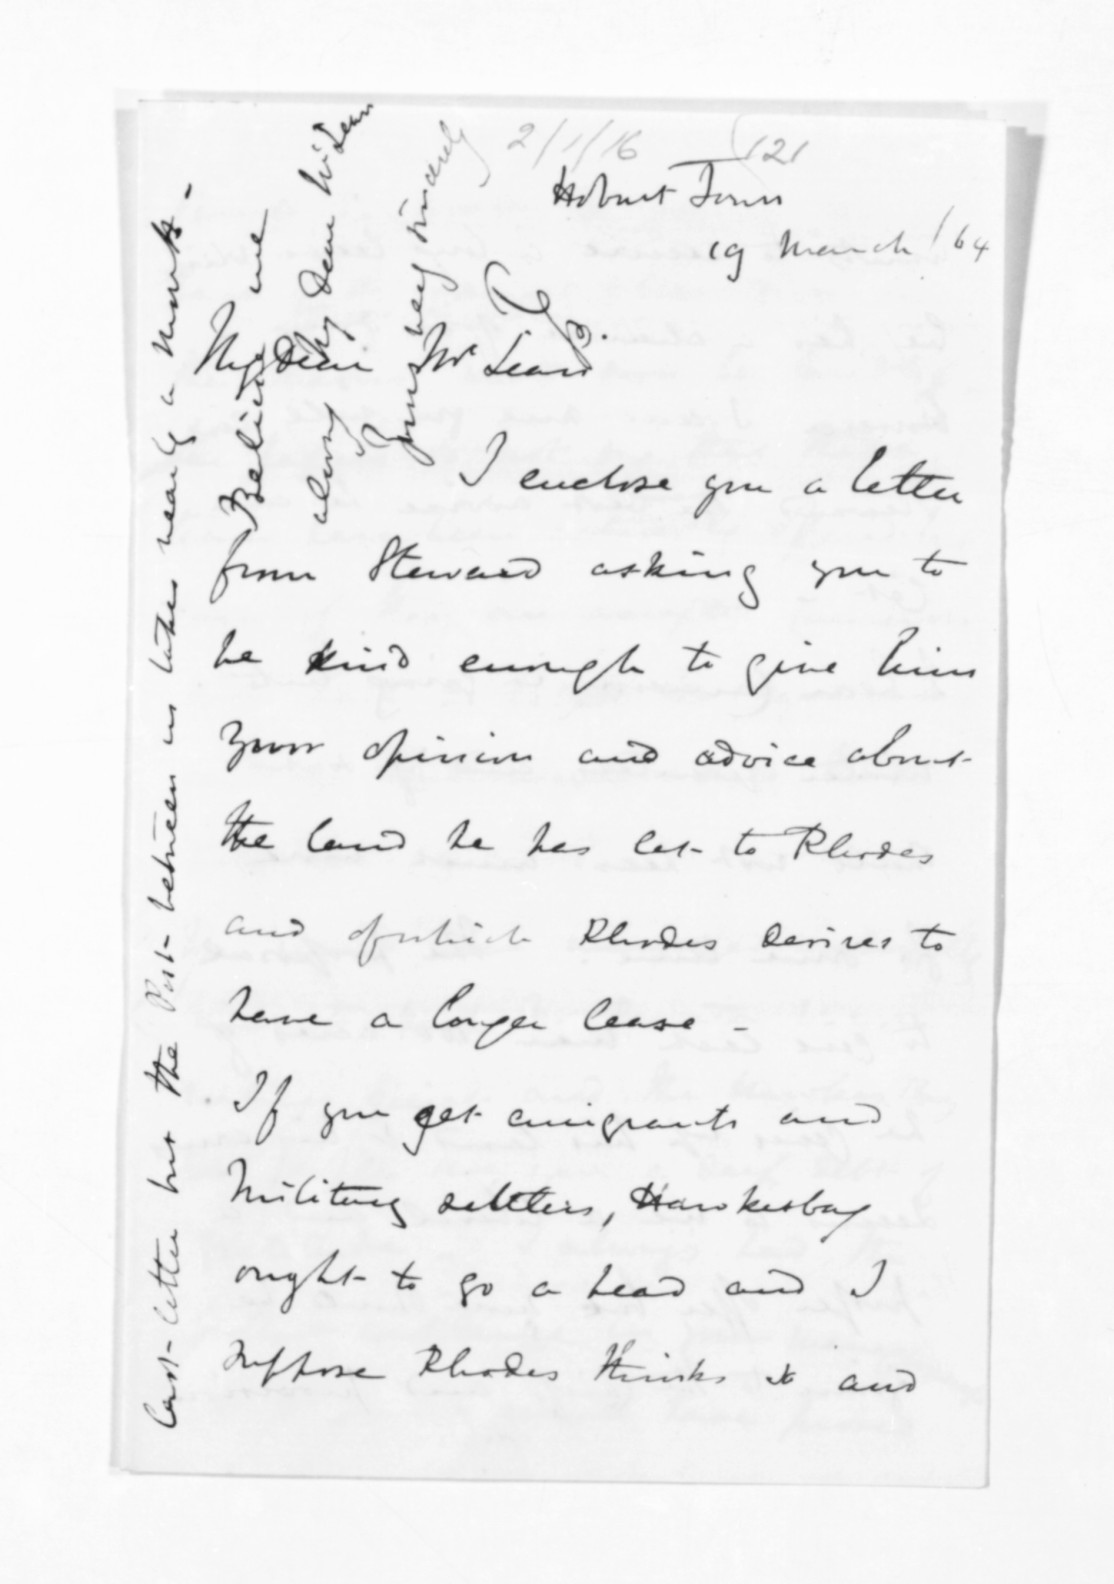 2/1/16
121
Hobart Town
19 March /64
My Dear McLean
I enclose you a letter
from Steward asking you to
be kind enough to give him
your opinion and advice about
the land he has let to Rhodes
and of which Rhodes desires to
have a longer lease -
If you get emigrants and
Military settlers, Hawkesbay
ought to go a head and I
suppose Rhodes thinks so and
last letter but the Post between us takes nearly a month -
Believe me
always my Dear McLean
Yours very sincerely